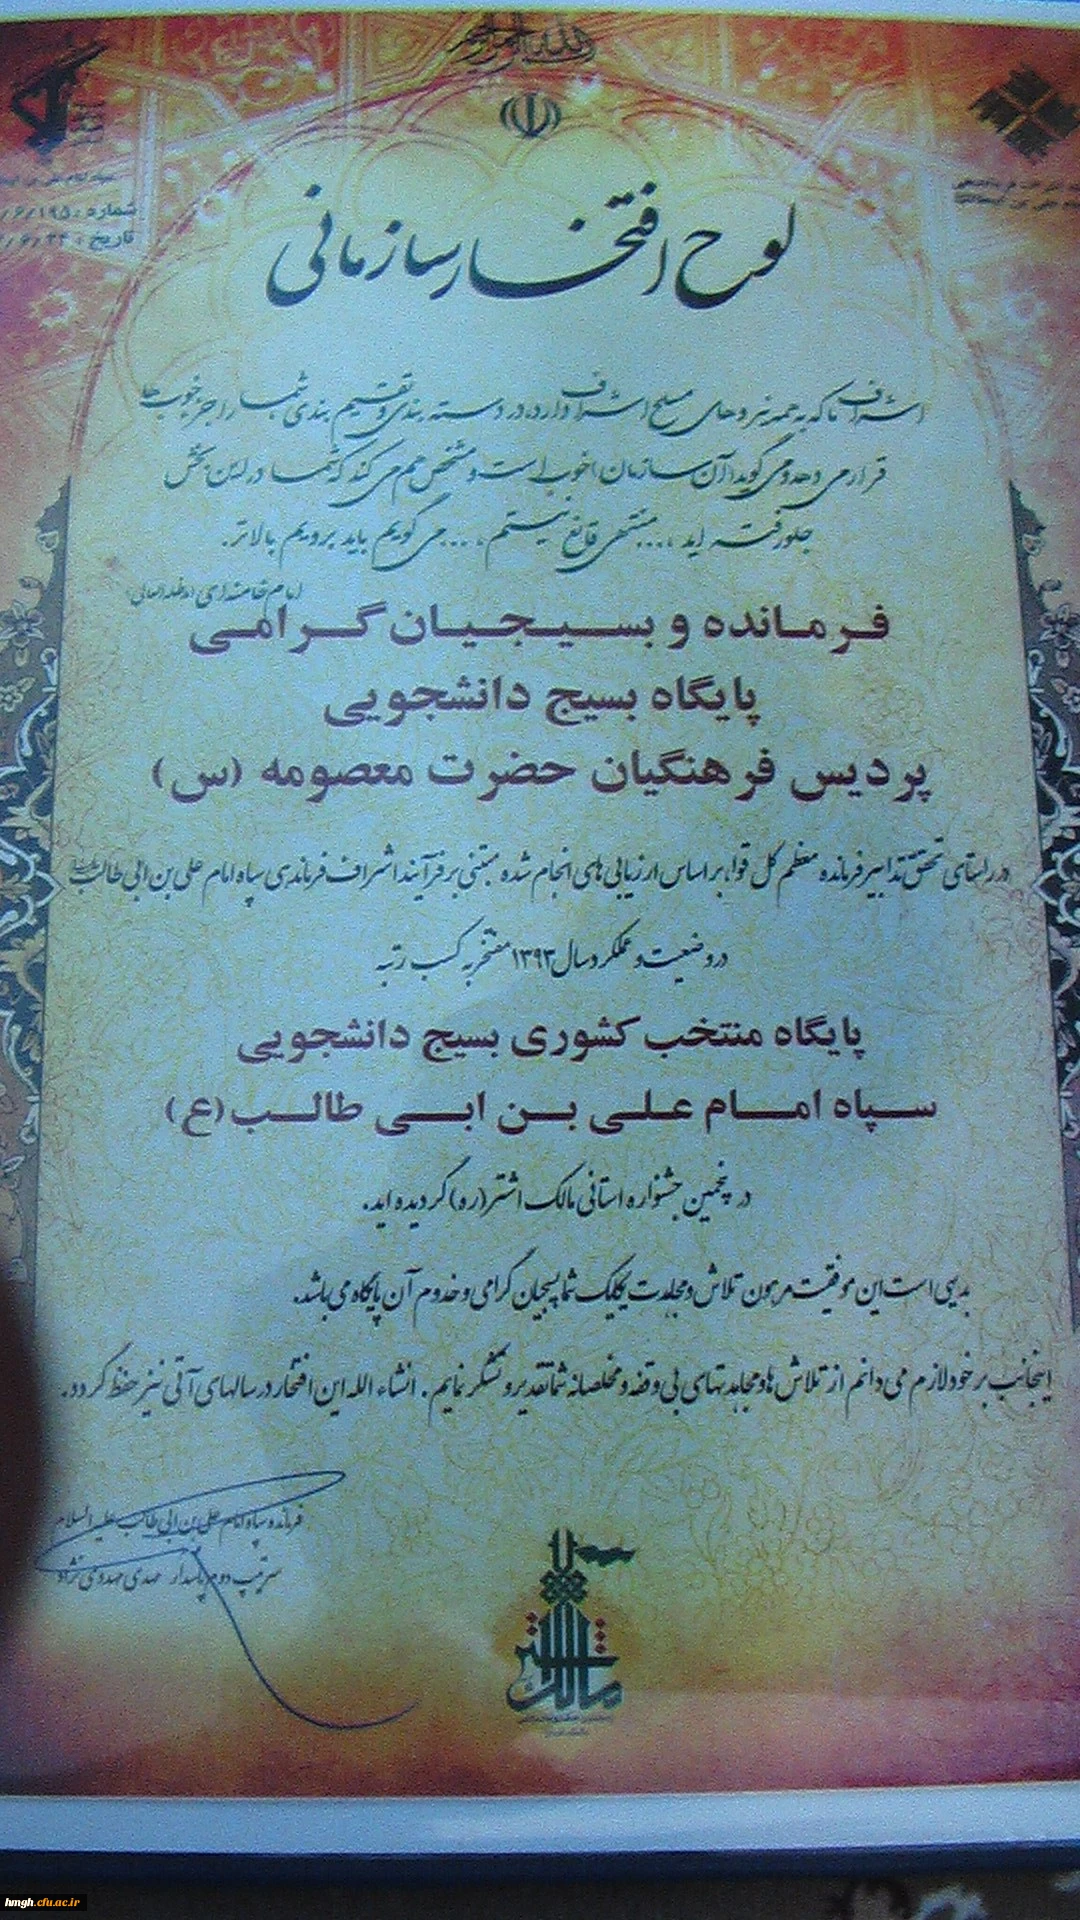 بسم الله الرحمن الرحیم
شماره : ۶/۱۹۵/
تاریخ : ۶/۲۴/
لوح افتخار سازمانی
اشراف ما که به همه نیروهای مسلح اشراف دارد، در دسته بندی و تقسیم بندی شما را جزء خوب ها
قرار می دهد و می گوید: آن سازمان خوب است و مشخص هم می کند که شما در این بخش
جلو رفته اید ،... منتهی قانع نیستم، ... می گوییم باید برویم بالاتر.
امام خامنه ای (مدظله العالی)
فرمانده و بسیجیان گرامی
پایگاه بسیج دانشجویی
پردیس فرهنگیان حضرت معصومه (س)
در راستای تحقق تدابیر فرمانده معظم کل قوا، بر اساس ارزیابی های انجام شده مبتنی بر فرآیند اشراف فرماندهی سپاه امام علی بن ابی طالب
در وضعیت و عملکرد سال ۱۳۹۳ مفتخر به کسب رتبه
پایگاه منتخب کشوری بسیج دانشجویی
سپاه امام علی بن ابی طالب (ع)
در پنجمین جشنواره استانی مالک اشتر (ره) گردیده اید.
بدیهی است این موفقیت مرهون تلاش و مجاهدت یکایک شما بسیجیان گرامی و خدوم آن پایگاه می باشد.
اینجانب بر خود لازم می دانم از تلاش ها و مجاهدتهای بی وقفه و مخلصانه شما تقدیر و تشکر نمایم. انشاء الله این افتخار در سالهای آتی نیز حفظ گردد.
فرمانده سپاه امام علی بن ابی طالب علیه السلام
سرتیپ دوم پاسدار مهدی مهدوی نژاد
مالک اشتر
hmgh.cfu.ac.ir